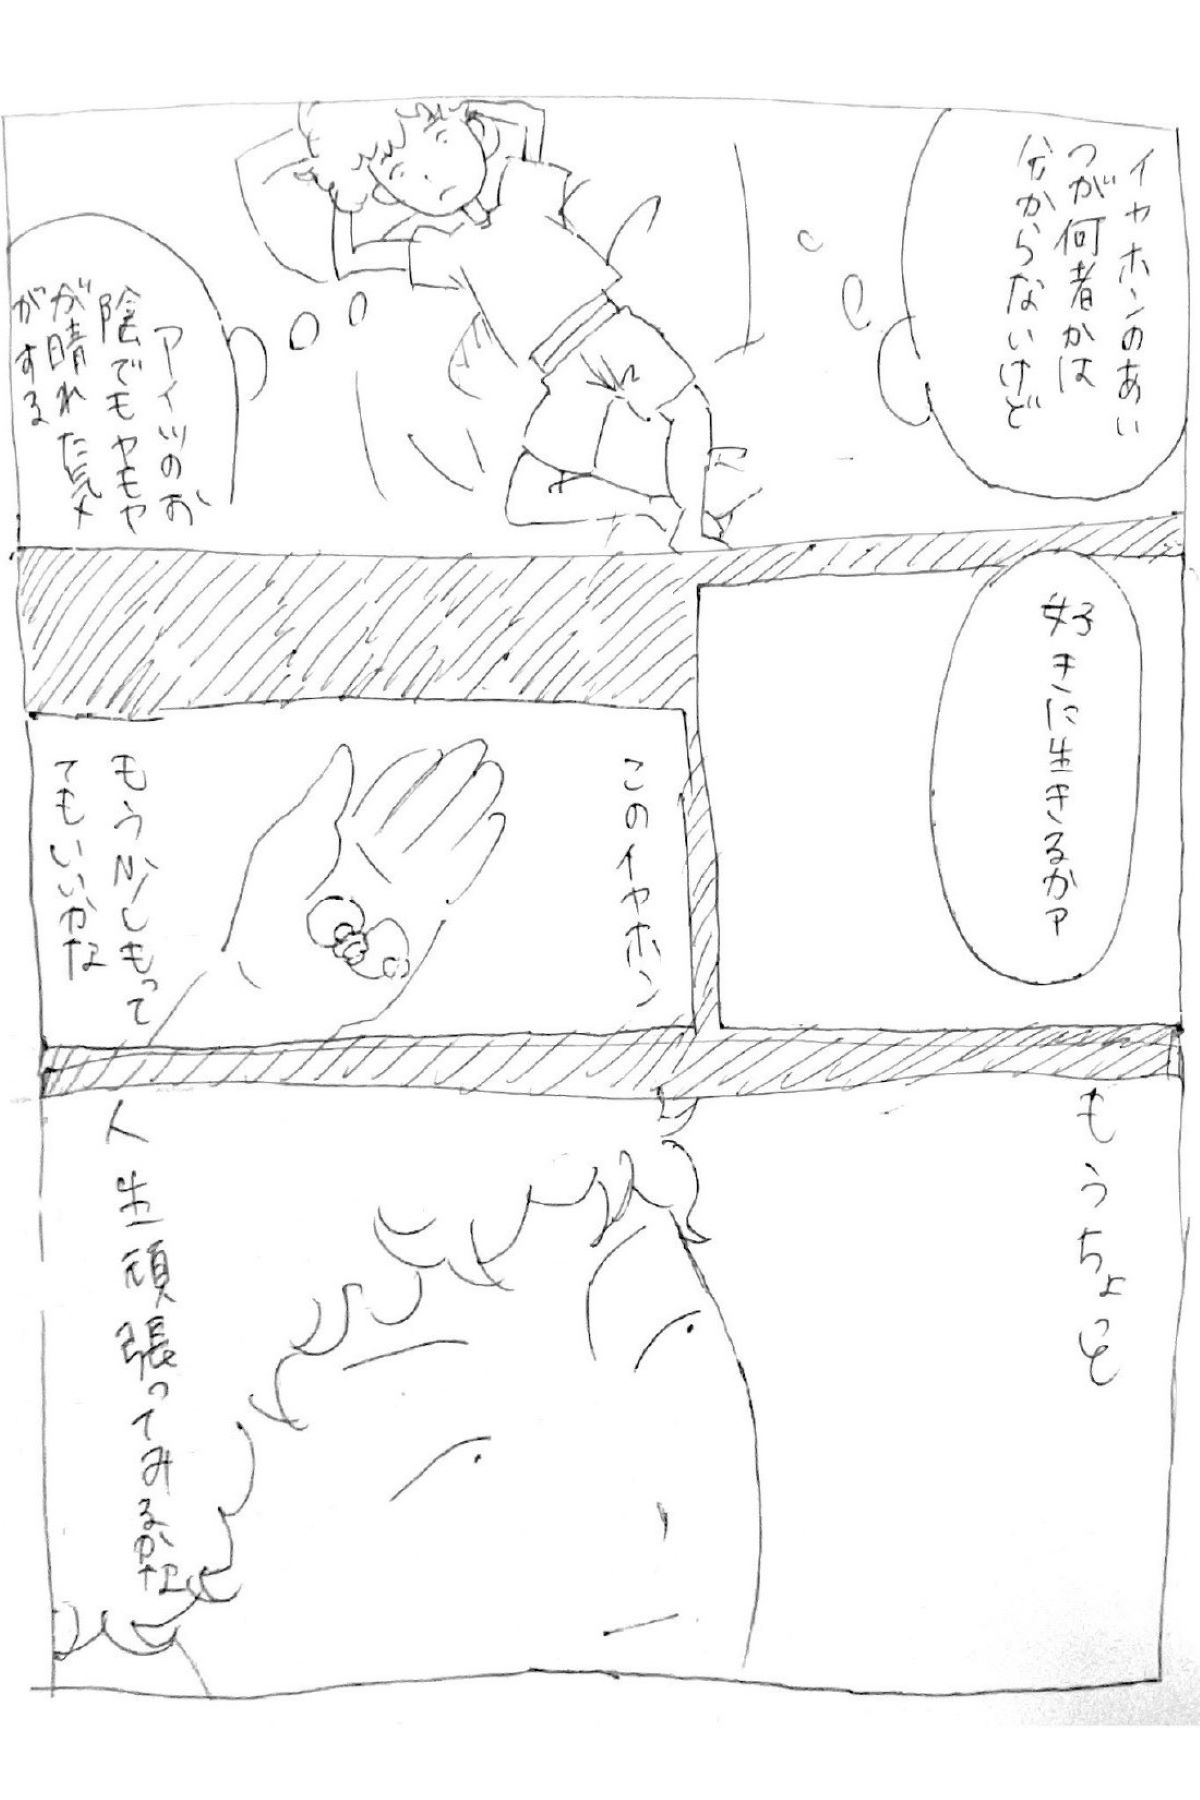 イヤホンのあい
つが何者かは
分からないけど
アイツのお
陰でモヤモヤ
が晴れた気
がする
好きに生きるかァ
このイヤホン
もう少しもって
てもいいかな
もうちょっと
人生頑張ってみるかな